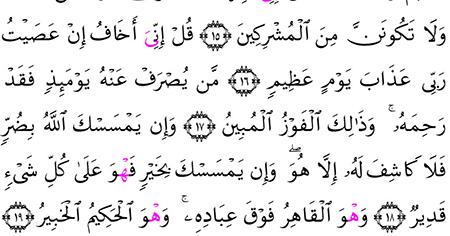 وَلَا تَكُونَنَّ مِنَ ٱلْمُشْرِكِينَ ۝١٥ قُلْ إِنِّىَ أَخَافُ إِنْ عَصَيْتُ
رَبِّى عَذَابَ يَوْمٍ عَظِيمٍ ۝١٦ مَّن يُصْرَفْ عَنْهُ يَوْمَئِذٍ فَقَدْ
رَحِمَهُۥ ۚ وَذَٰلِكَ ٱلْفَوْزُ ٱلْمُبِينُ ۝١٧ وَإِن يَمْسَسْكَ ٱللَّهُ بِضُرٍّ
فَلَا كَاشِفَ لَهُۥ إِلَّا هُوَ ۖ وَإِن يَمْسَسْكَ بِخَيْرٍ فَهْوَ عَلَىٰ كُلِّ شَىْءٍ
قَدِيرٌ ۝١٨ وَهْوَ ٱلْقَاهِرُ فَوْقَ عِبَادِهِۦ ۚ وَهْوَ ٱلْحَكِيمُ ٱلْخَبِيرُ ۝١٩